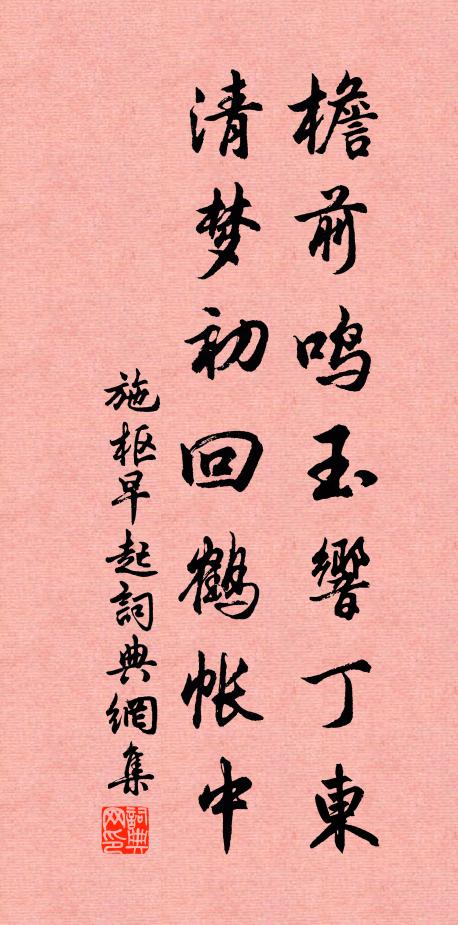 檐前鸣玉響丁東
清梦初回鶴帐中
施枢早起詞典網集
詞典网印